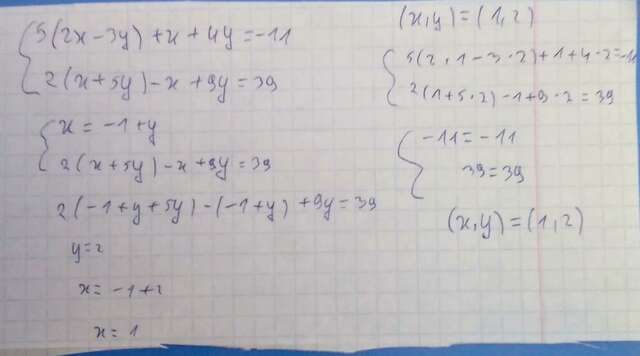 5(2x-3y)+x+4y=-11
2(x+5y)-x+9y=39
x=-1+y
2(x+5y)-x+9y=39
2(-1+y+5y)-(-1+y)+9y=39
y=2
x=-1+2
x=1
(x,y)=(1,2)
5(2·1-3·2)+1+4·2=-11
2(1+5·2)-1+9·2=39
-11=-11
39=39
(x,y)=(1,2)